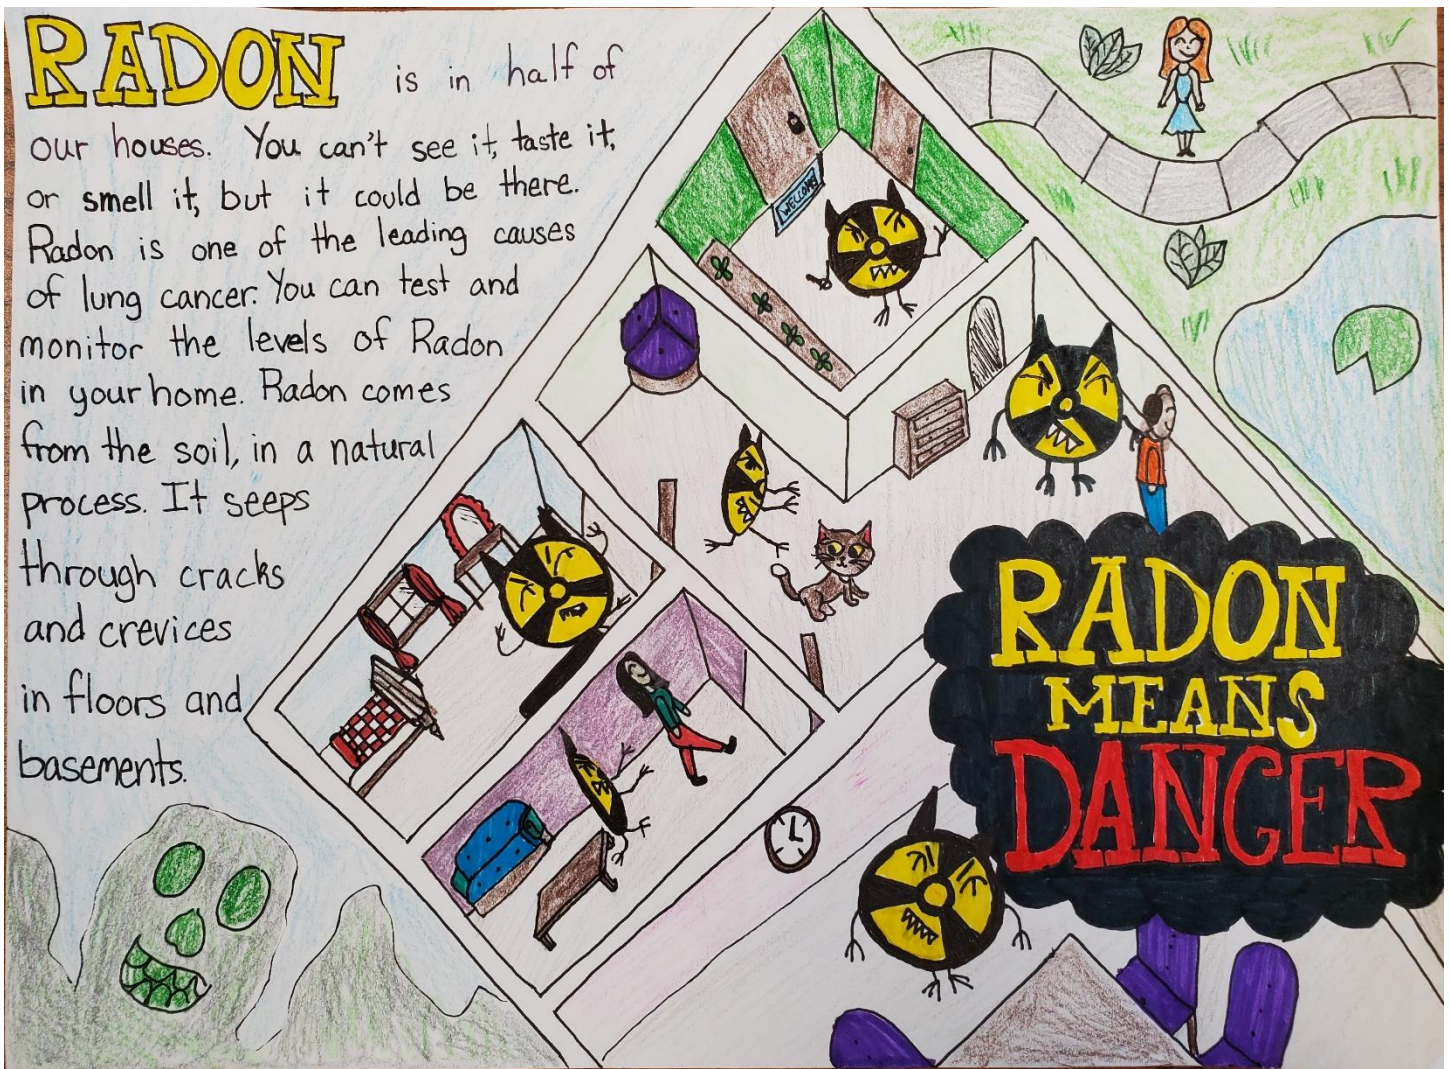 RADON is in half of
our houses. You can't see it, taste it,
or smell it, but it could be there.
Radon is one of the leading causes
of lung cancer. You can test and
monitor the levels of Radon
in your home. Radon comes
from the soil, in a natural
process. It seeps
through cracks
and crevices
in floors and
basements.
WELCOME
RADON
MEANS
DANGER